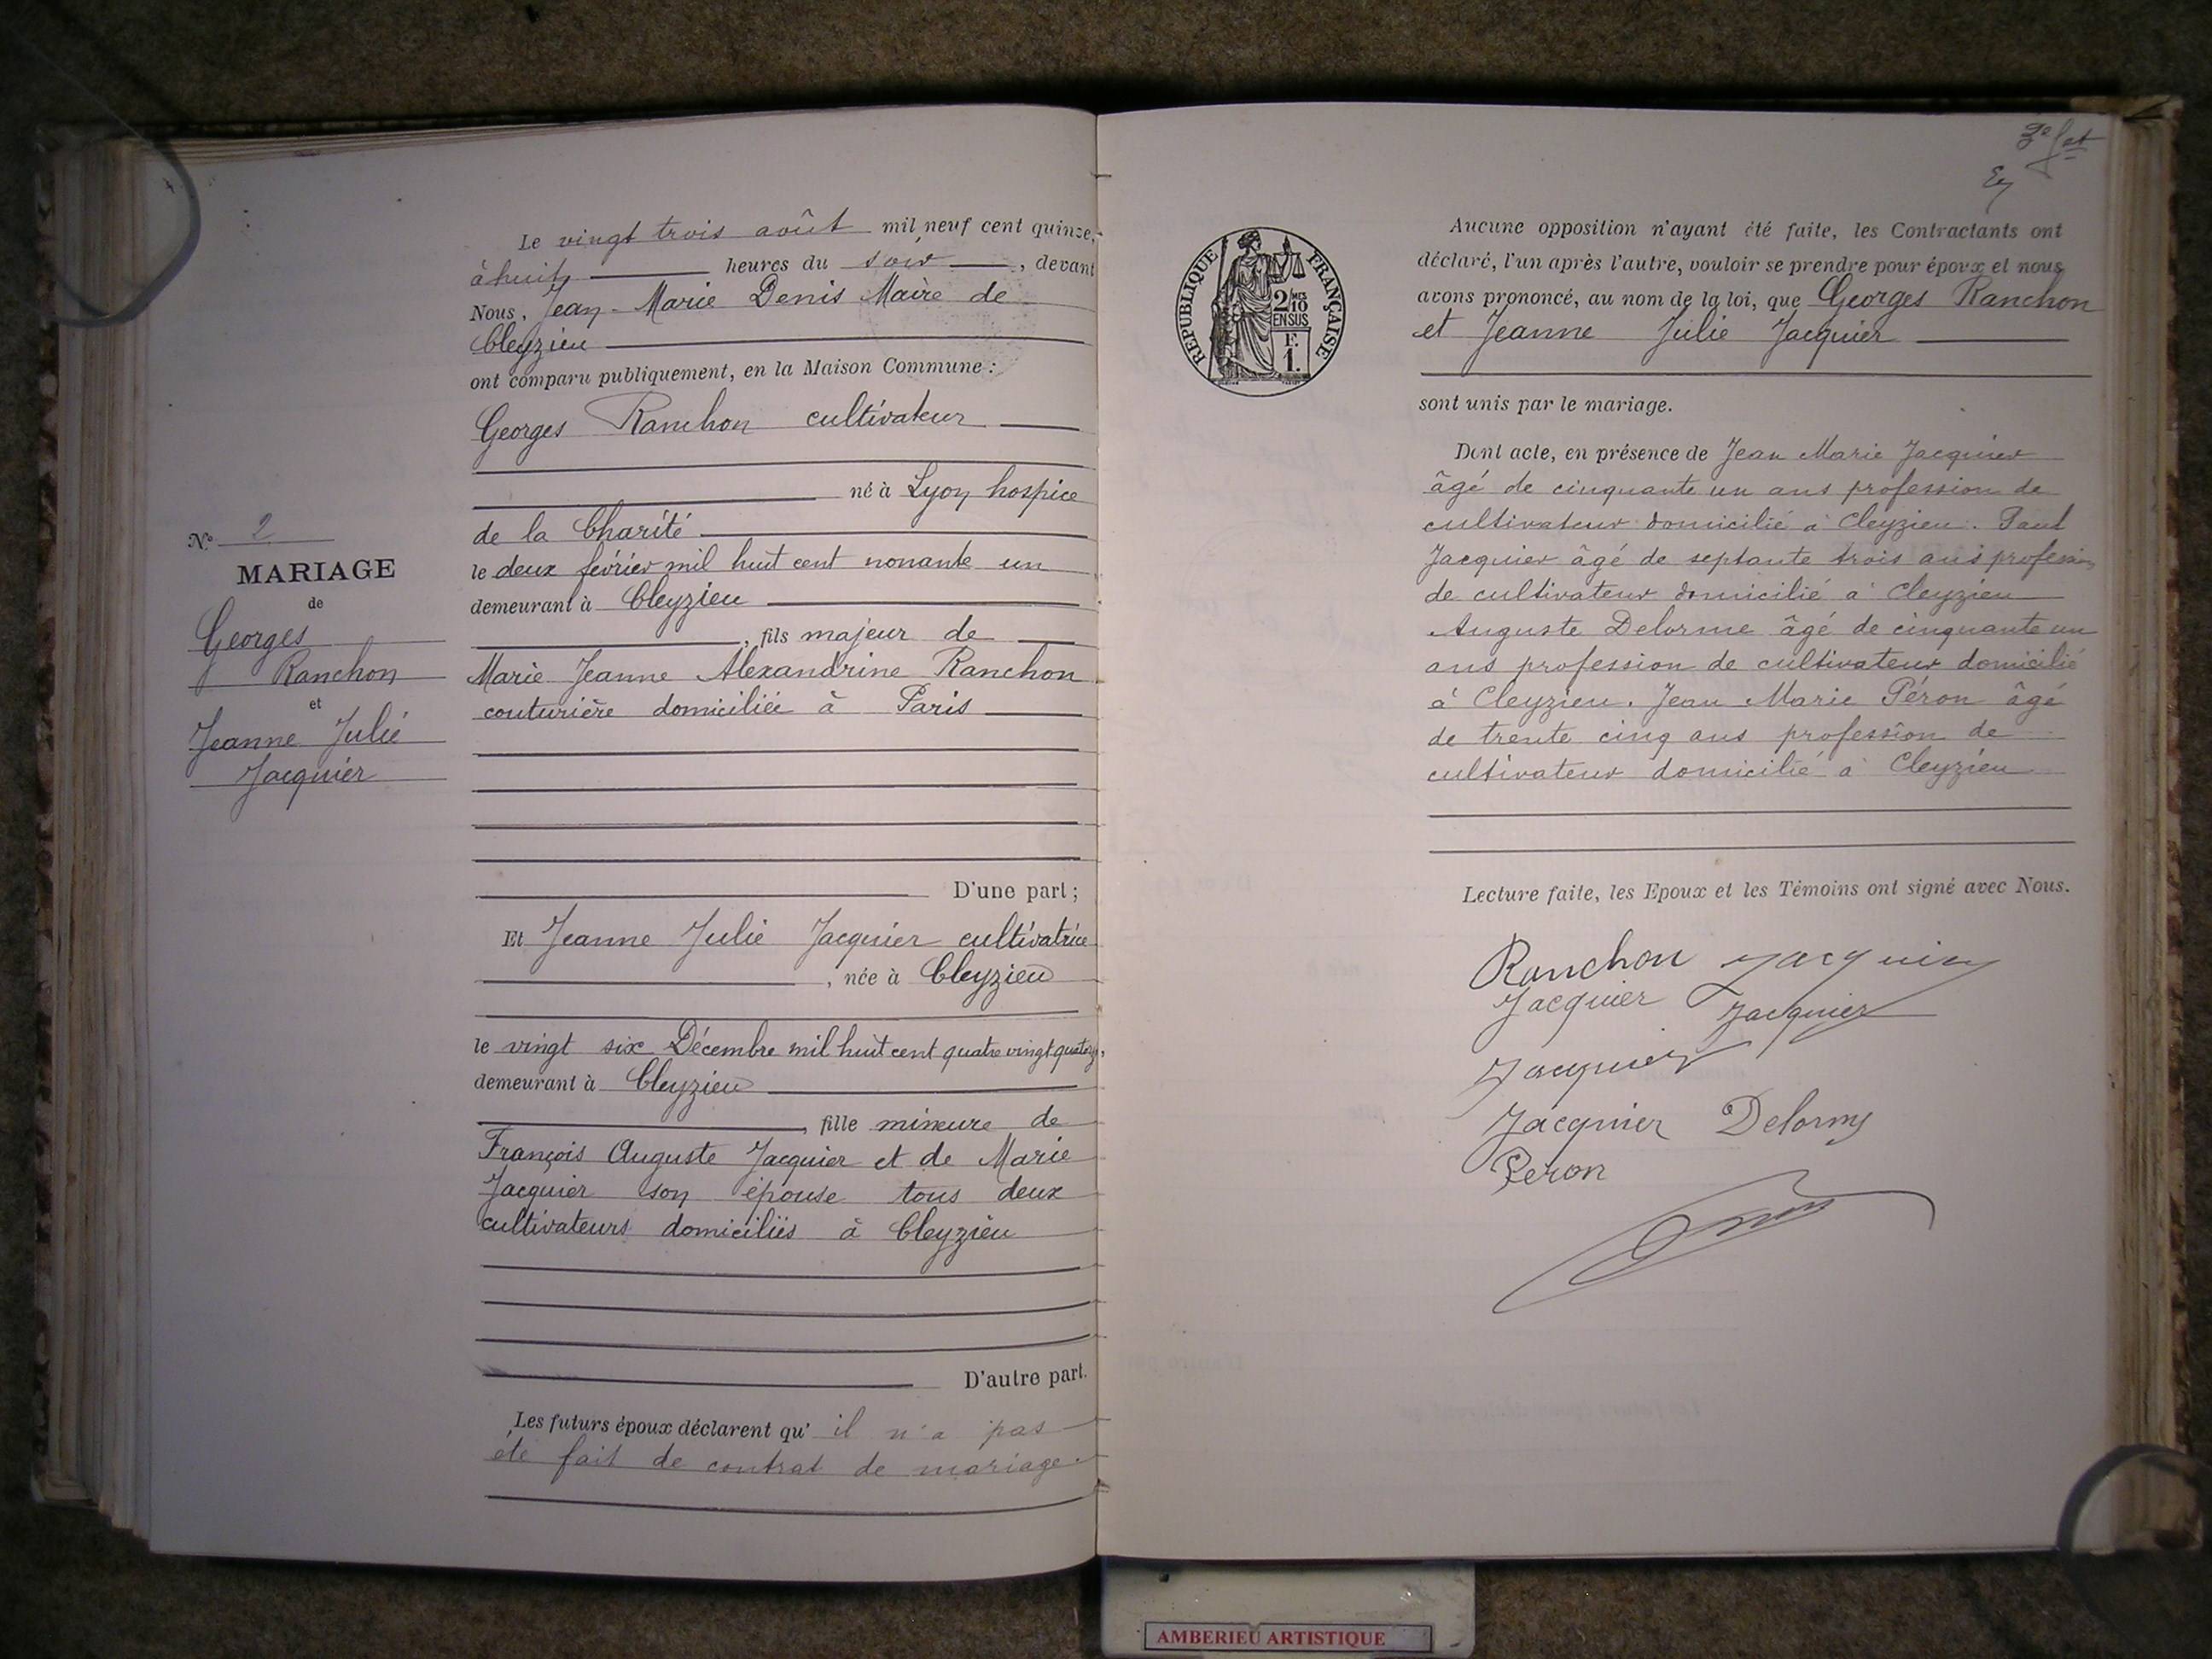 Le vingt trois août mil neuf cent quinze,
à huit heures du soir, devant
Nous, Jean-Marie Denis Maire de
Cleyzieu
ont comparu publiquement, en la Maison Commune :
Georges Ranchon cultivateur
né à Lyon hospice
de la Charité
le deux février mil huit cent nonante un
demeurant à Cleyzieu
, fils majeur de
Marie Jeanne Alexandrine Ranchon
couturière domiciliée à Paris
D'une part ;
Et Jeanne Julie Jacquier cultivatrice
, née à Cleyzieu
le vingt six Décembre mil huit cent quatre vingt quatorze,
demeurant à Cleyzieu
, fille mineure de
François Auguste Jacquier et de Marie
Jacquier son épouse tous deux
cultivateurs domiciliés à Cleyzieu
D'autre part.
Les futurs époux déclarent qu' il n'a pas
été fait de contrat de mariage.
N° 2
MARIAGE
de
Georges
Ranchon
et
Jeanne Julie
Jacquier
3e fet
RÉPUBLIQUE FRANÇAISE
2/10 MES
EN SUS
F.
1.
Aucune opposition n'ayant été faite, les Contractants ont
déclaré, l'un après l'autre, vouloir se prendre pour époux et nous
avons prononcé, au nom de la loi, que Georges Ranchon
et Jeanne Julie Jacquier
sont unis par le mariage.
Dont acte, en présence de Jean Marie Jacquier
âgé de cinquante un ans profession de
cultivateur domicilié à Cleyzieu. Paul
Jacquier âgé de septante trois ans profession
de cultivateur domicilié à Cleyzieu
Auguste Delorme âgé de cinquante un
ans profession de cultivateur domicilié
à Cleyzieu. Jean Marie Péron âgé
de trente cinq ans profession de
cultivateur domicilié à Cleyzieu
Lecture faite, les Epoux et les Témoins ont signé avec Nous.
Ranchon Jacquier
Jacquier Jacquier
Jacquier
Jacquier Delorme
Peron
AMBERIEU ARTISTIQUE